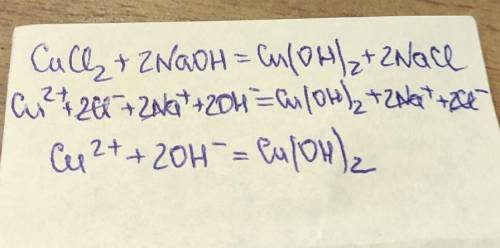 CuCl₂ + 2NaOH = Cu(OH)₂ + 2NaCl
Cu²⁺ + 2Cl⁻ + 2Na⁺ + 2OH⁻ = Cu(OH)₂ + 2Na⁺ + 2Cl⁻
Cu²⁺ + 2OH⁻ = Cu(OH)₂